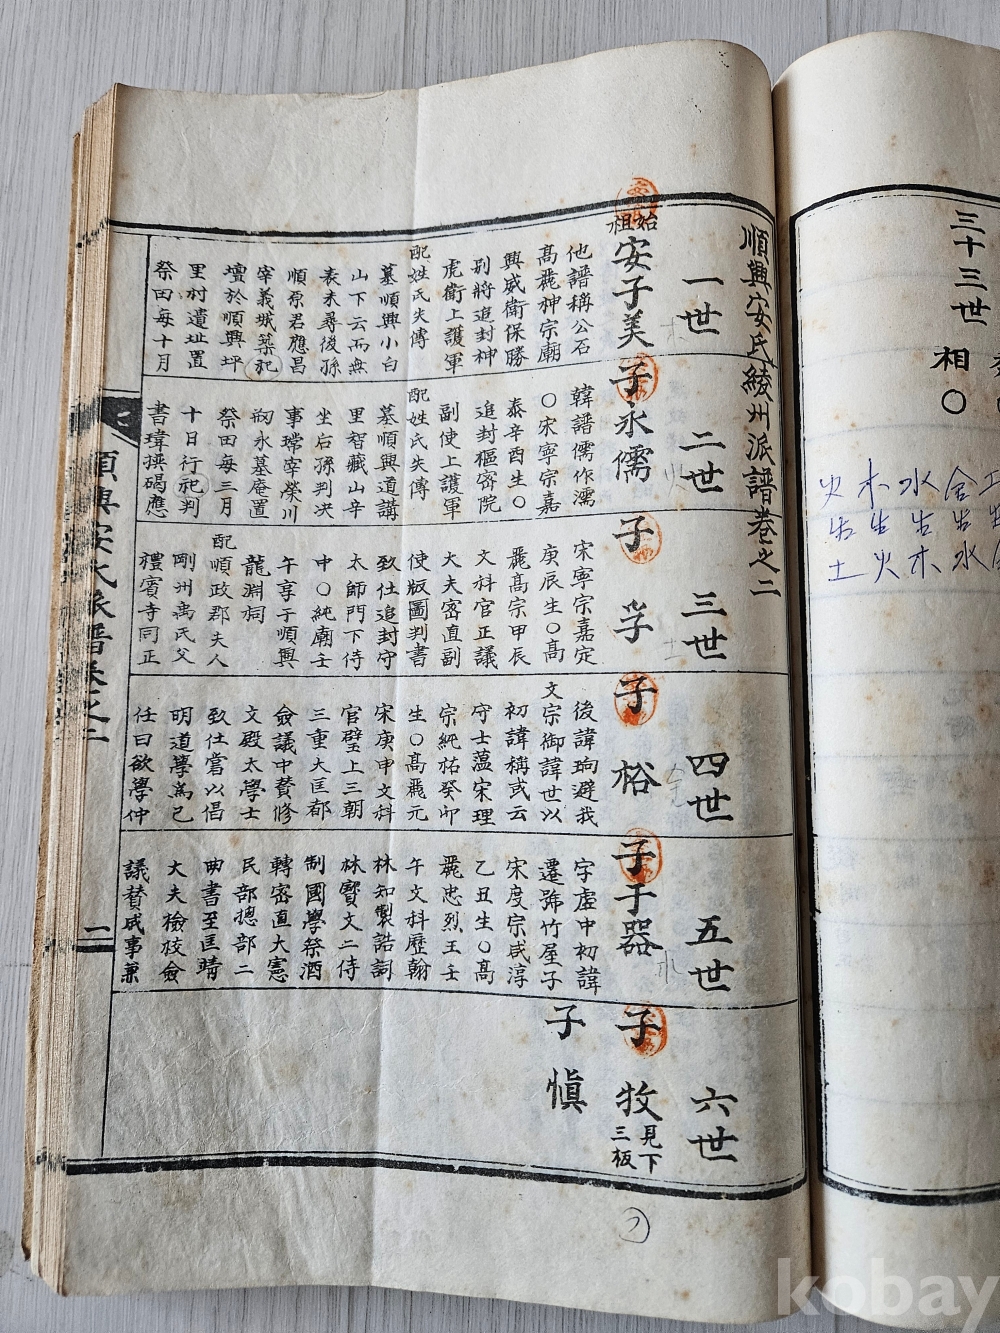 順興安氏綾州派譜卷之二
一世
始祖
安子美
他譜稱公石
高麗神宗廟
興威衛保勝
別將追封神
虎衛上護軍
配姓氏失傳
墓順興小白
山下云而無
表未尋後孫
順原君應昌
宰義城築祀
壇於順興坪
里村遺址置
祭田每十月
二世
子永儒
韓譜儒作濡
〇宋寧宗嘉
泰辛酉生〇
追封樞密院
副使上護軍
配姓氏失傳
墓順興道講
里智藏山辛
坐后孫判决
事瑺宰榮川
刱永墓庵置
祭田每三月
十日行祀判
書瑋撰碣應
三世
子孚
宋寧宗嘉定
庚辰生〇高
麗高宗甲辰
文科官正議
大夫密直副
使版圖判書
致仕追封守
太師門下侍
中〇純廟壬
午享于順興
龍淵祠
配順政郡夫人
剛州禹氏父
禮賓寺同正
四世
子裕
後諱珦避我
文宗御諱世以
初諱稱或云
守士蕰宋理
宗純祐癸卯
生〇高麗元
宋庚申文科
官壁上三朝
三重大匡都
僉議中賛修
文殿太學士
致仕嘗以倡
明道學爲己
任曰欲學仲
五世
子于器
字虛中初諱
遷號竹屋子
宋度宗咸淳
乙丑生〇高
麗忠烈王壬
午文科歷翰
林知製誥詞
林寳文二侍
制國學祭酒
轉密直大憲
民部摠部二
典書至匡靖
大夫檢校僉
議賛成事兼
六世
子牧
見下
三板
子愼
順興安氏派譜卷之二
二
三十三世
相〇
火木水金土
生生生生生
土火木水
kobay